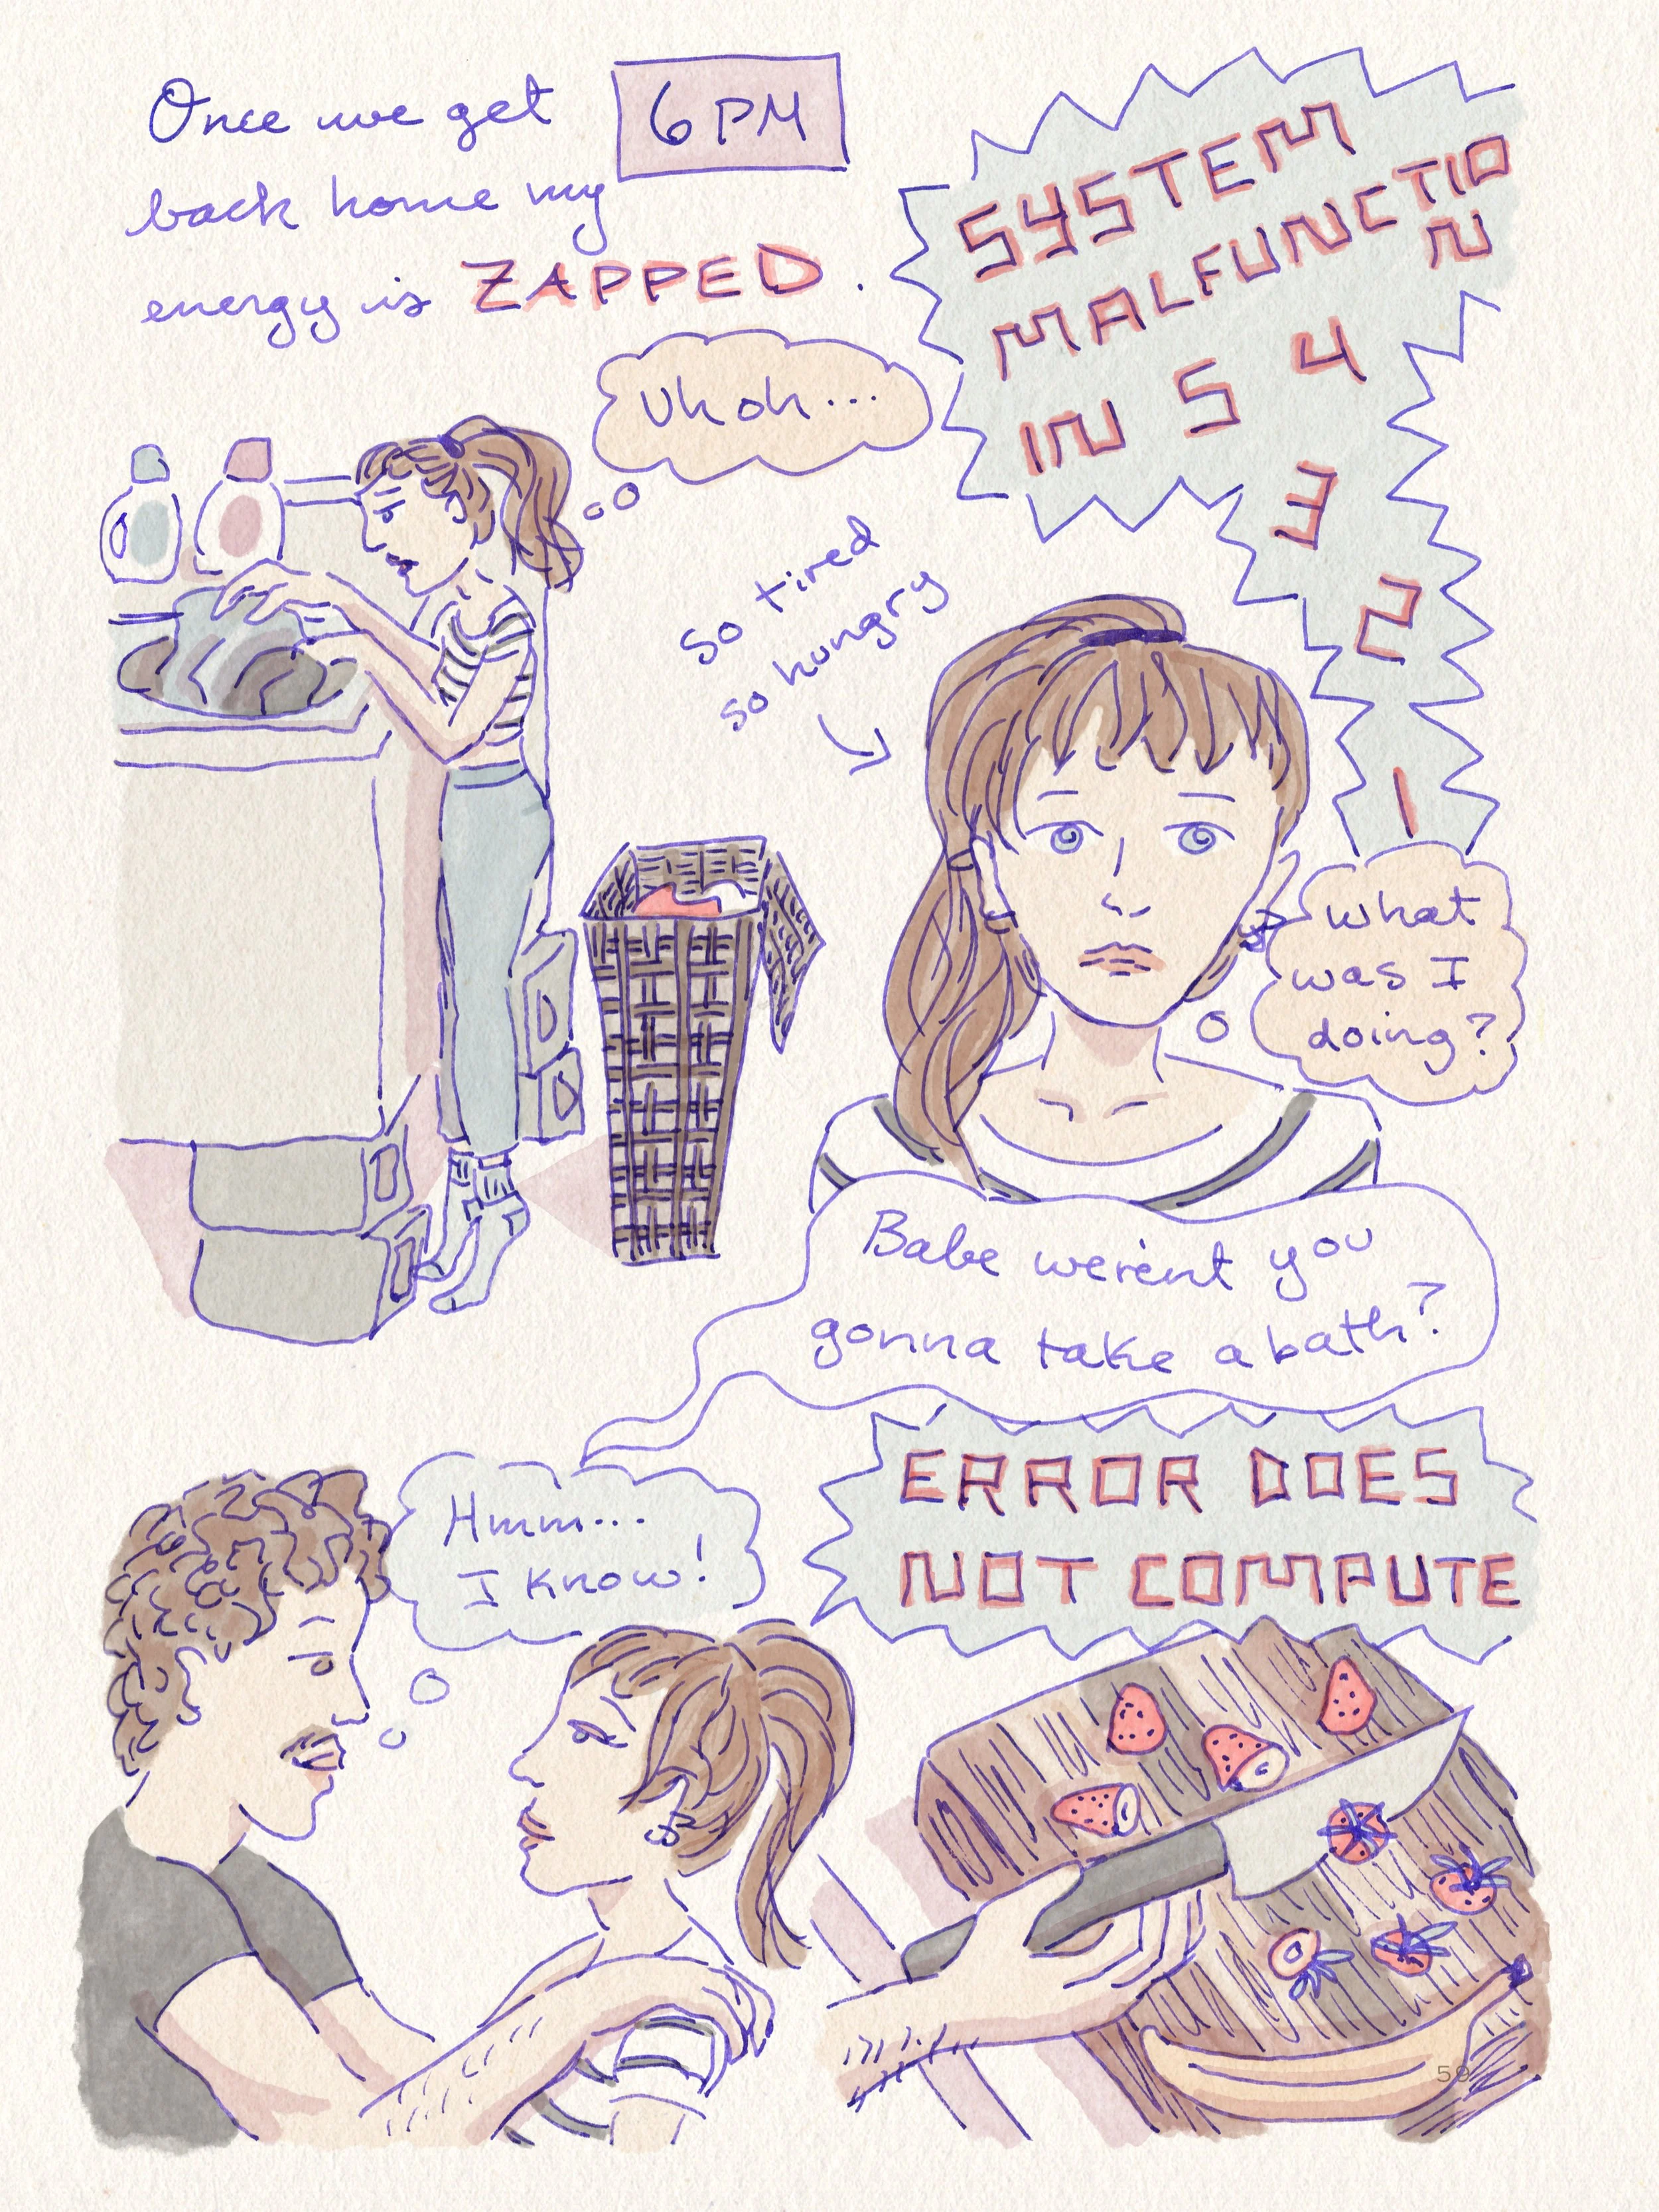 Once we get
back home my
energy is ZAPPED.
6 PM
Uh oh...
SYSTEM
MALFUNCTIO
N
IN 5 4
3
2
1
so tired
so hungry
what
was I
doing?
Babe werent you
gonna take a bath?
Hmm...
I know!
ERROR DOES
NOT COMPUTE
59